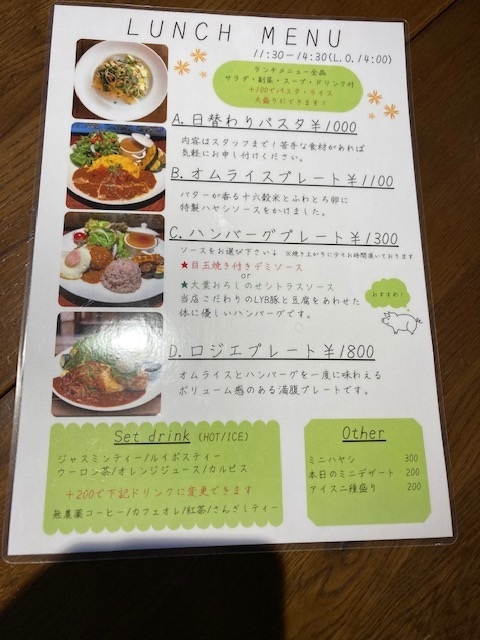 LUNCH MENU
11:30-14:30(L.O.14:00)
ランチメニュー全品
サラダ・副菜・スープ・ドリンク付
+100でパスタ・ライス
大盛りにできます！
A. 日替わりパスタ¥1000
内容はスタッフまで！苦手な食材があれば
気軽にお申し付けください。
B. オムライスプレート¥1100
バターが香る十六穀米とふわとろ卵に
特製ハヤシソースをかけました。
C. ハンバーグプレート¥1300
ソースをお選び下さい↓ ※焼き上がりに少々お時間頂いております
★目玉焼き付きデミソース
or
★大葉おろしのせシトラスソース
当店こだわりのLYB豚と豆腐をあわせた
体に優しいハンバーグです。
おすすめ！
D. ロジエプレート¥1800
オムライスとハンバーグを一度に味わえる
ボリューム感のある満腹プレートです。
Set drink (HOT/ICE)
ジャスミンティー/ルイボスティー
ウーロン茶/オレンジジュース/カルピス
+200で下記ドリンクに変更できます
無農薬コーヒー/カフェオレ/紅茶/さんざしティー
Other
ミニハヤシ 300
本日のミニデザート 200
アイス二種盛り 200